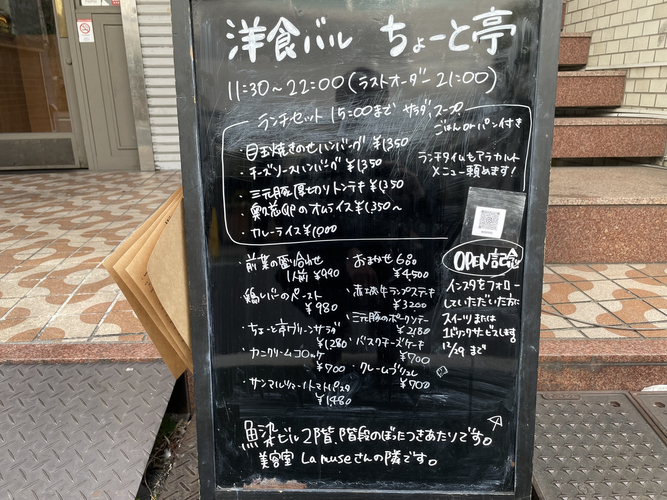 洋食バル ちょーと亭
11:30〜22:00(ラストオーダー 21:00)
ランチセット 15:00まで サラダ、スープ、
ごはんorパン付き
・目玉焼きのせハンバーグ ¥1,350
・チーズソースハンバーグ ¥1,350
・三元豚厚切りトンテキ ¥1,350
のオムライス ¥1,350〜
・カレーライス ¥1,000
ランチタイムもアラカルト
メニュー頼めます!
前菜の盛り合わせ
1人前 ¥990
・鶏レバーのペースト
¥980
・ちょーと亭グリーンサラダ
¥1,280
・カニクリームコロッケ
¥700
・サンマルツァーノトマトパスタ
¥1,480
・おまかせ6品
¥4,500
・赤城牛ランプステーキ
¥3200
・三元豚のポークソテー
¥2180
・バスクチーズケーキ
¥700
・クレームブリュレ
¥700
OPEN記念
インスタをフォロー
していただいた方に
スイーツまたは
1ドリンクサービスします
12/29まで
魚染ビル2階、階段のぼったつきあたりです。
美容室 La museさんの隣です。